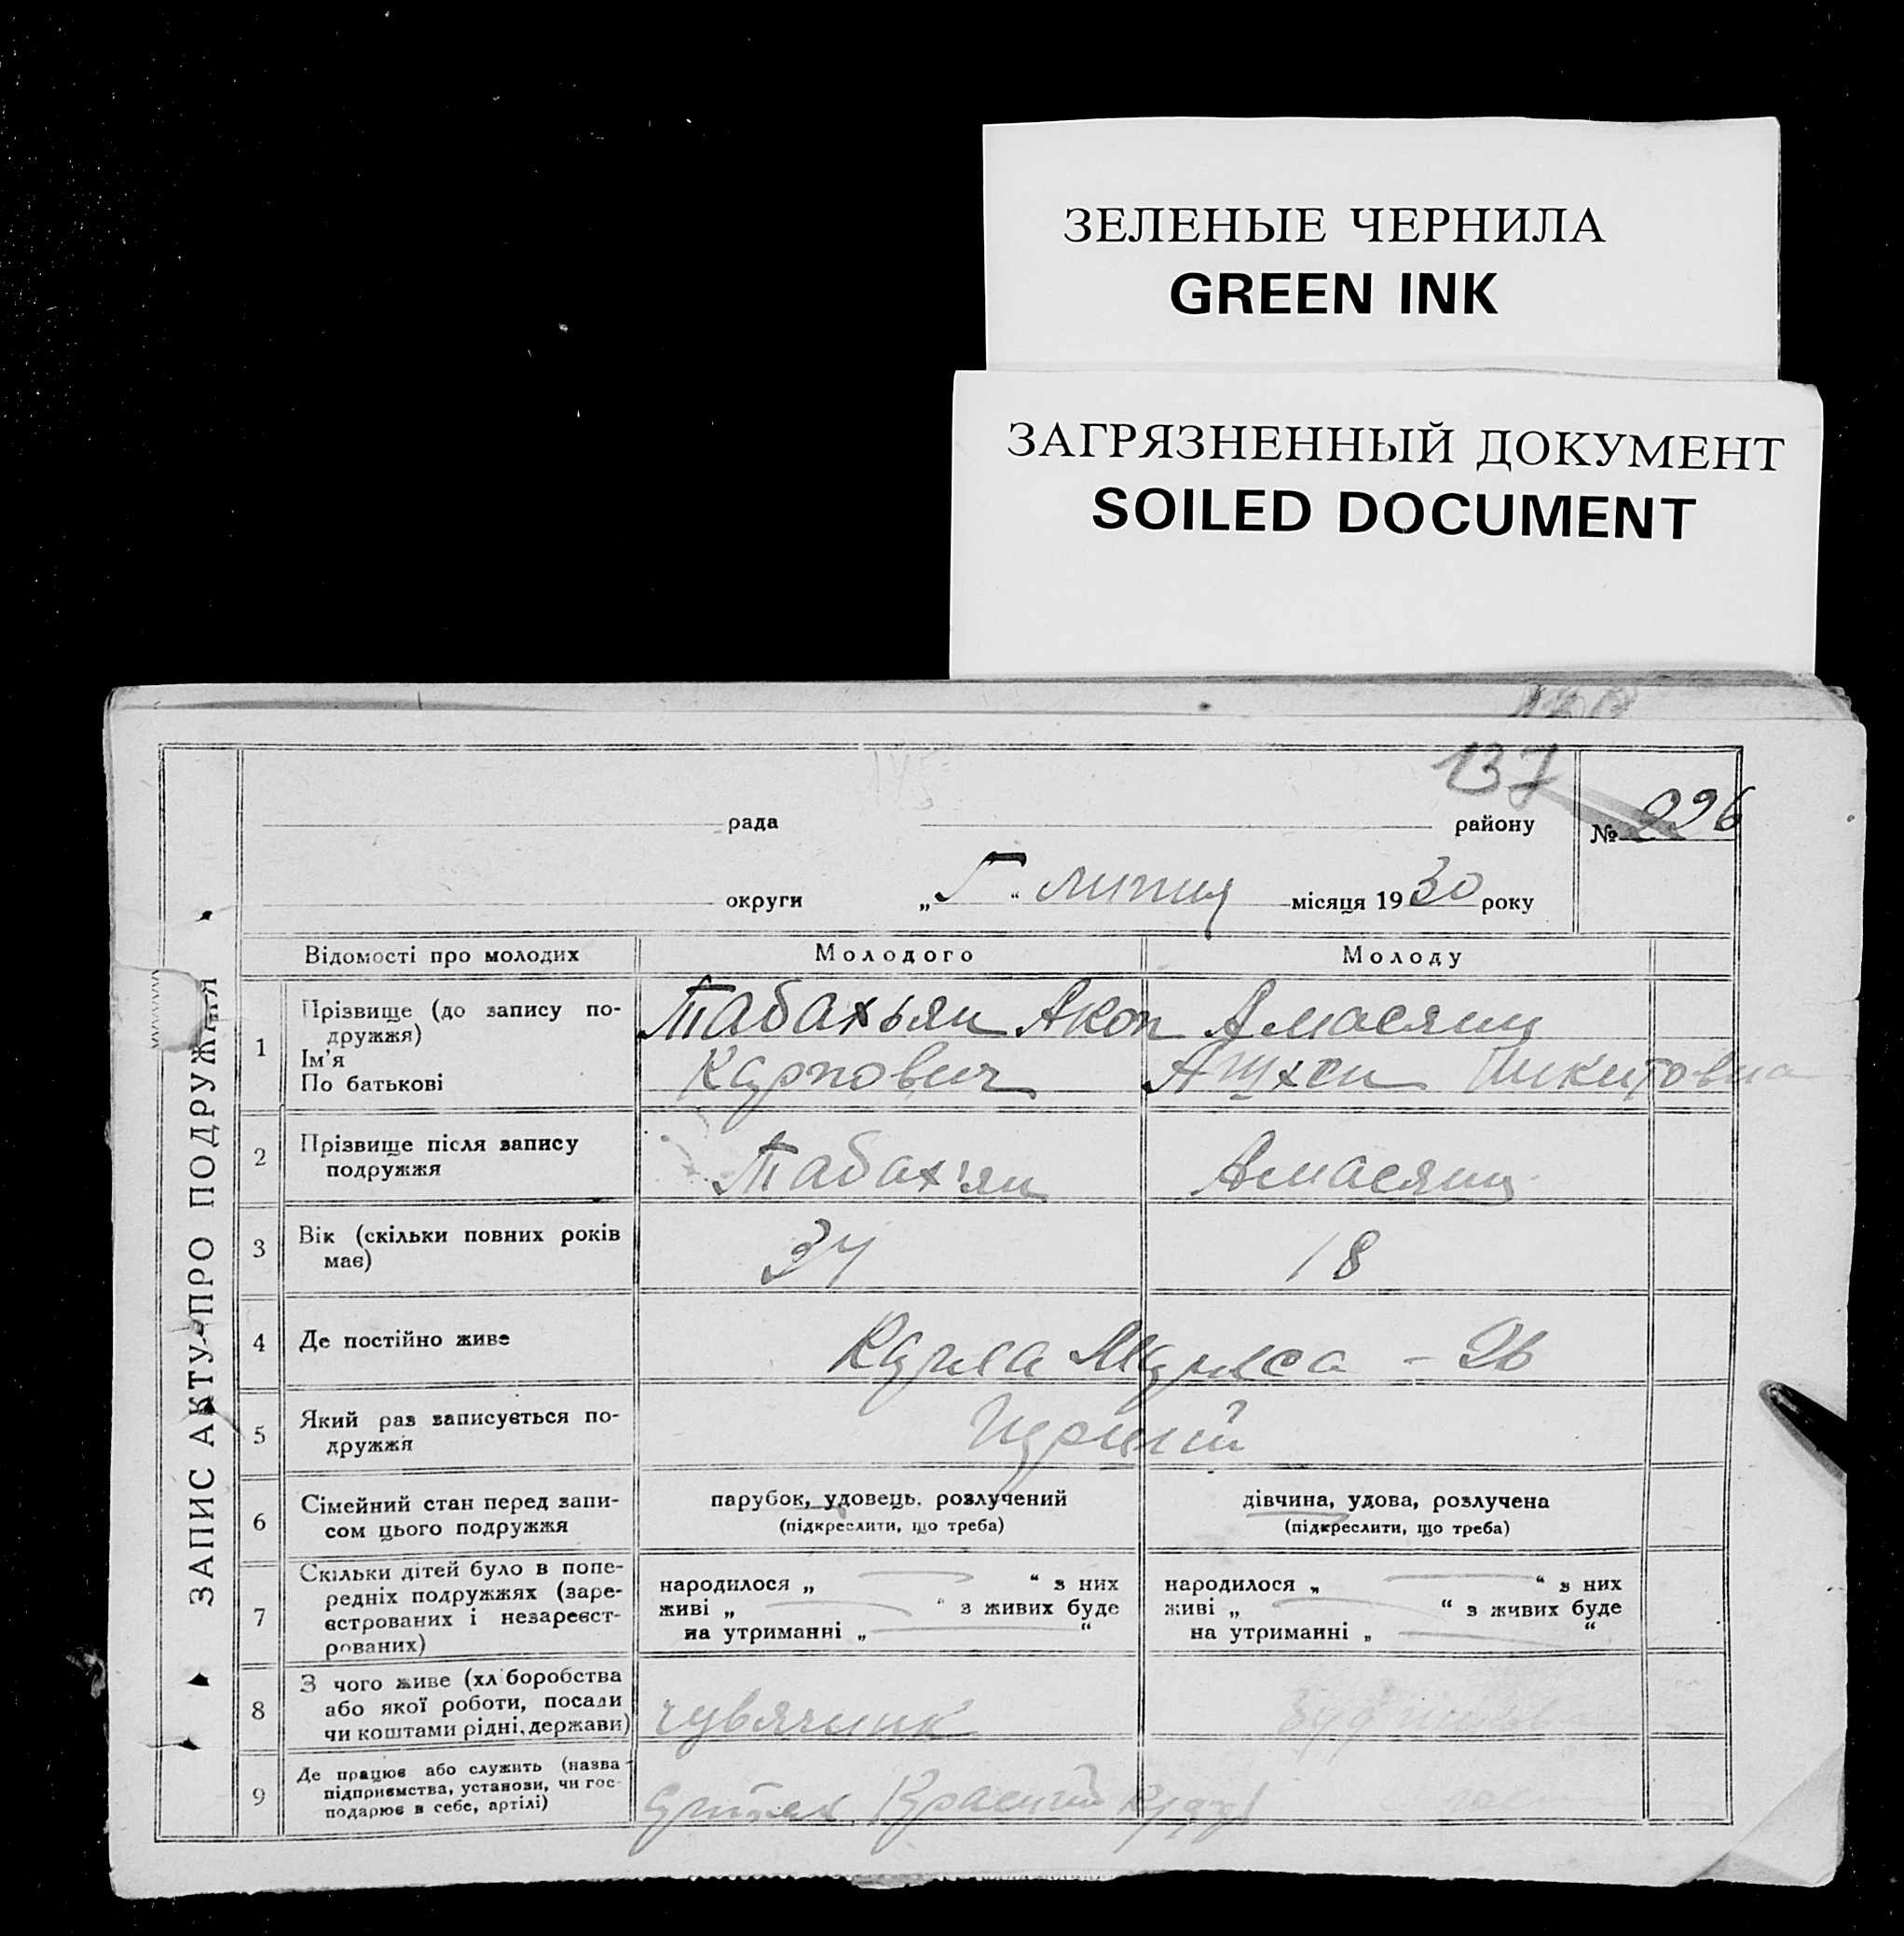 ЗЕЛЕНЫЕ ЧЕРНИЛА
GREEN INK
ЗАГРЯЗНЕННЫЙ ДОКУМЕНТ
SOILED DOCUMENT
137
рада району № 226
округи „ “ липня місяця 1930 року
ЗАПИС АКТУ ПРО ПОДРУЖЖЯ
Відомості про молодих Молодого Молоду
1 Прізвище (до запису по-
дружжя)
Ім'я
По батькові
Табахьян Акоп
Карпович
Амасянц
Ашхен Никитовна
2 Прізвище після запису
подружжя
Табах'ян Амасянц
3 Вік (скільки повних років
має)
34 18
4 Де постійно живе
Карла Маркса - 26
5 Який раз записується по-
дружжя
6 Сімейний стан перед запи-
сом цього подружжя
парубок, удовець, розлучений
(підкреслити, що треба)
дівчина, удова, розлучена
(підкреслити, що треба)
7 Скільки дітей було в попе-
редніх подружжях (заре-
єстрованих і незареєст-
рованих)
народилося „ “ з них
живі „ “ з живих буде
на утриманні „ “
народилося „ “ з них
живі „ “ з живих буде
на утриманні „ “
8 З чого живе (хліборобства
або якої роботи, посади
чи коштами рідні, держави)
чувячник
9 Де працює або служить (назва
підприємства, установи, чи гос-
подарює в себе, артілі)